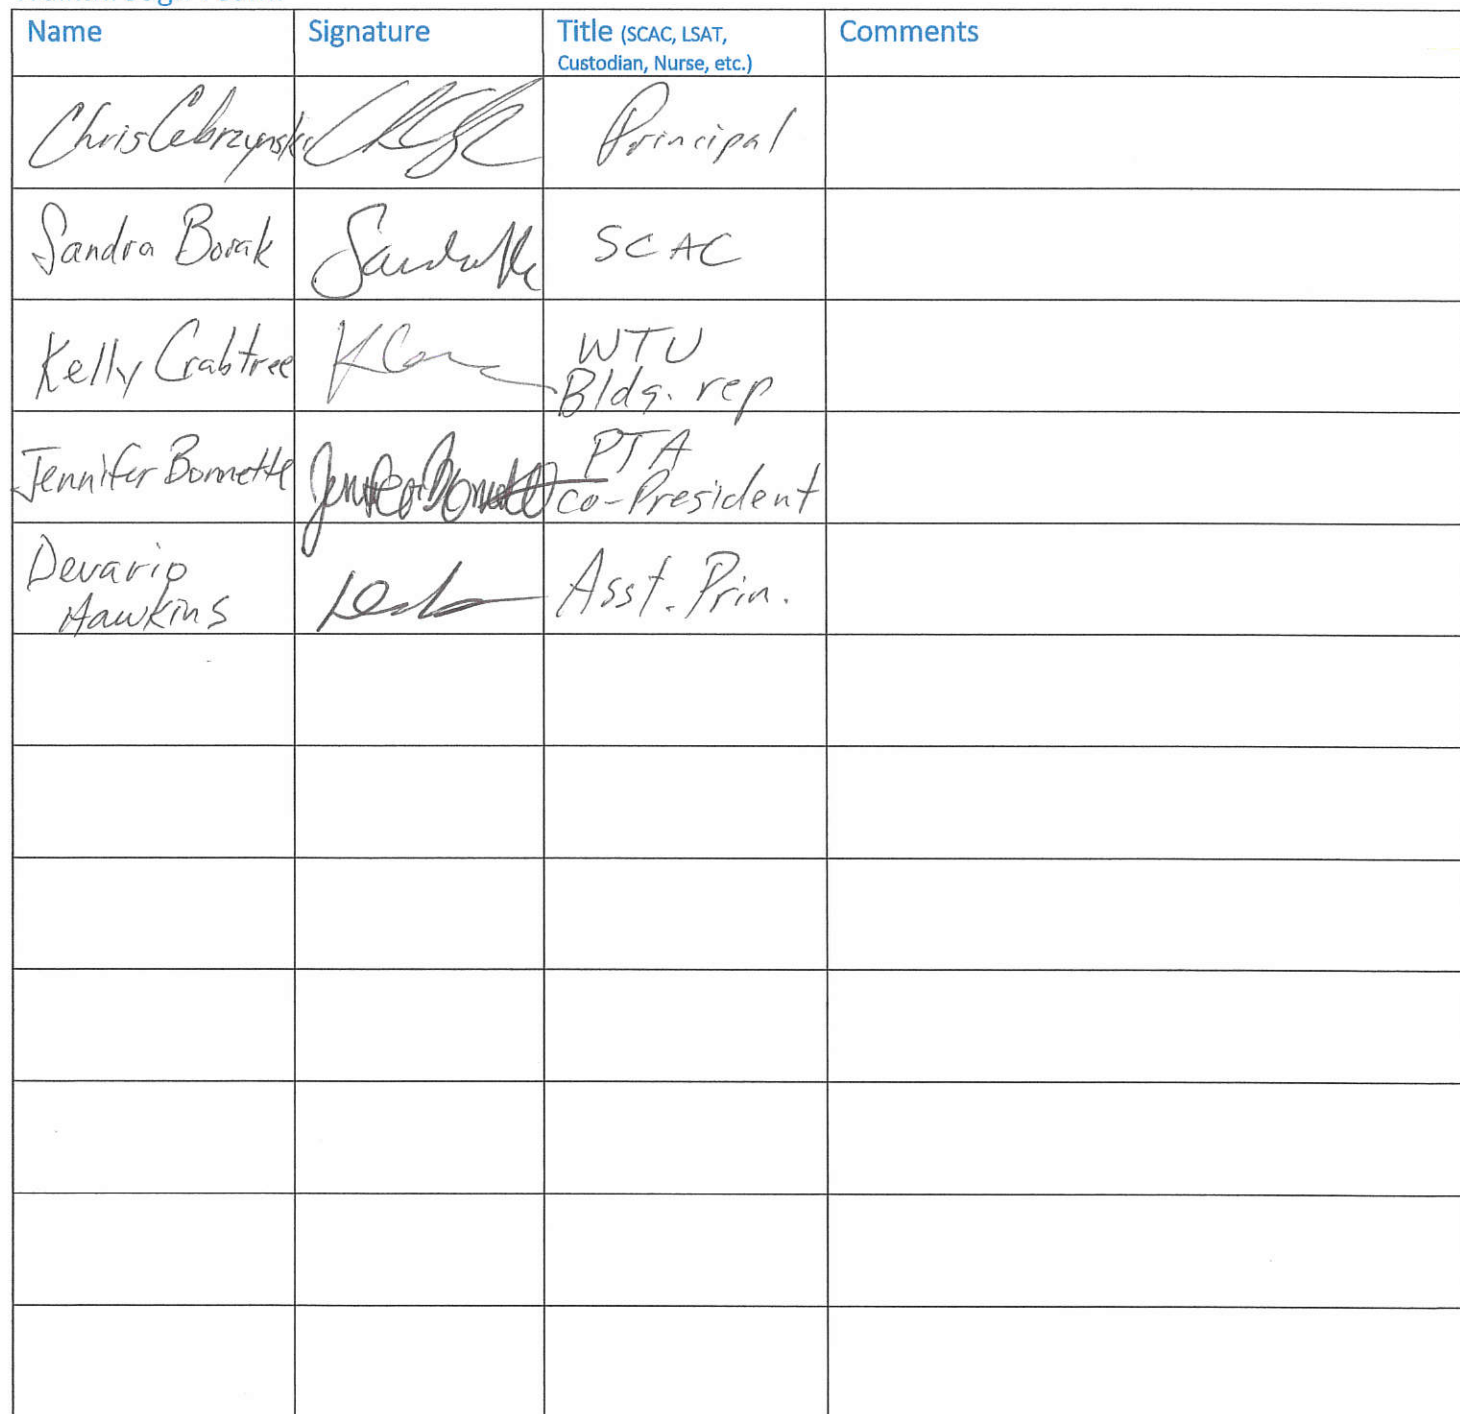 Name Signature Title (SCAC, LSAT, Comments
Custodian, Nurse, etc.)
Chris Cebrzynski Principal
Sandra Borak SCAC
Kelly Crabtree WTU
Bldg. rep
Jennifer Bonnette Jennifer Bonnette PTA
co-President
Devario
Hawkins Asst. Prin.